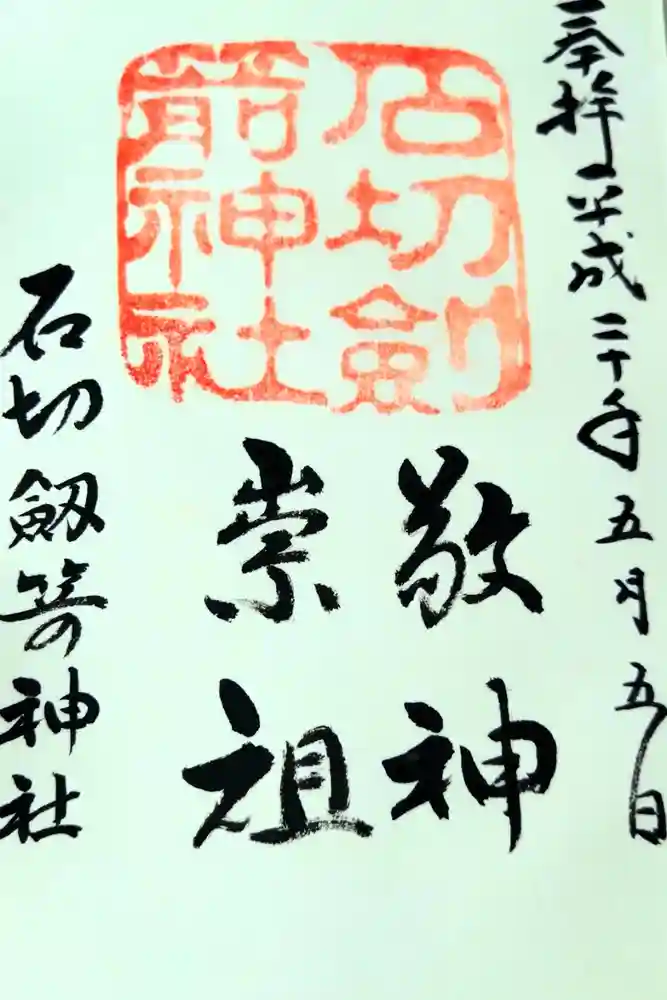 奉拝 平成二十年五月五日
石切劔
箭神社
敬神
崇祖
石切劔箭神社